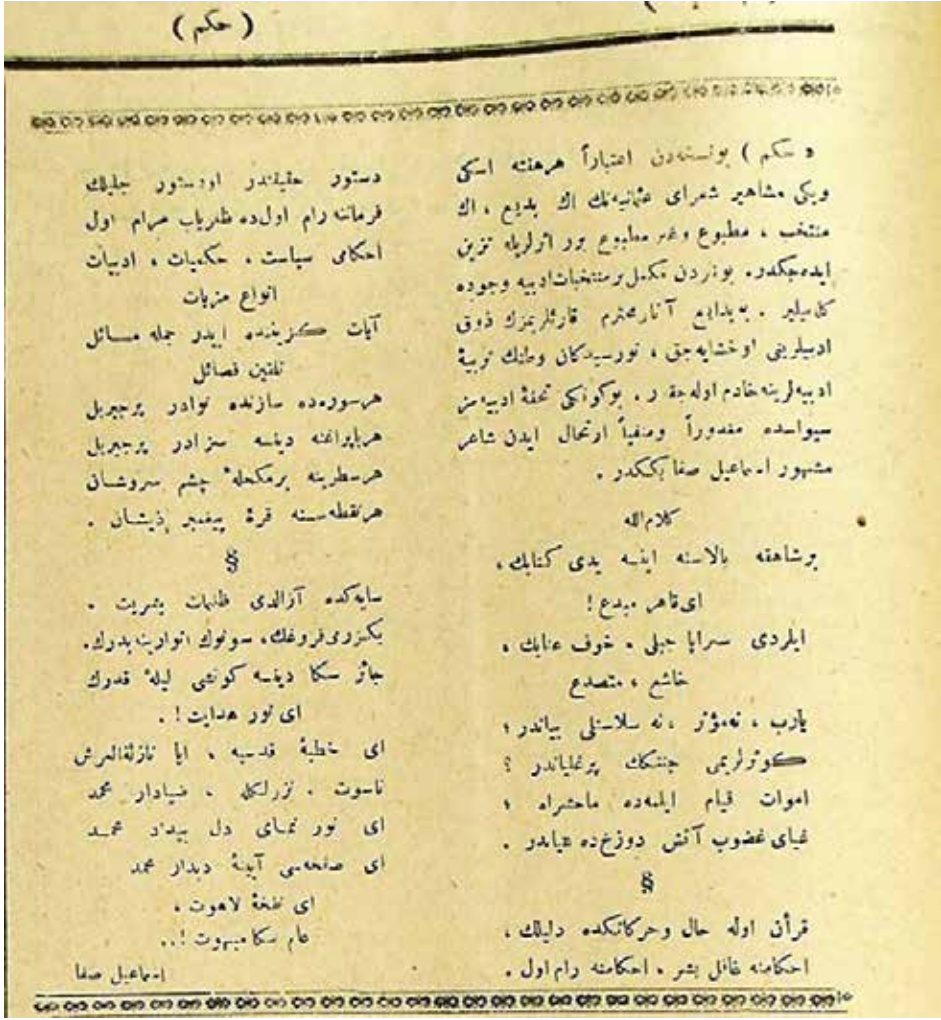 ( حكم )
( حكم ) بونسخه‌دن اعتباراً هرهفته اسكی
ویكی مشاهیر شعرای عثمانیه‌نك اك بدیع ، اك
منتخب ، مطبوع وغیر مطبوع برر اثرلریله تزیین
ایده‌جكدر . بونردن مكمل برمنتخبات ادبیه وجوده
كله‌بیلیر . بدایع آثار محترم قارئلریمزك ذوق
ادبیلرینی اوخشایه‌جق ، نورسیدكان وطنك تربیهٔ
ادبیه‌لرینه خادم اوله‌جقدر . بوكونكی تحفهٔ ادبیه‌مز
سیواسده مغدوراً ومنفیاً ارتحال ایدن شاعر
مشهور اسماعیل صفا بككدر .
كلام‌الله
برشاهقه بالاسنه اینسه یدی كتابك ،
ای قاهر مبدع !
ایلردی سراپا جبلی ، خوف عتابك ،
خاشع ، متصدع
یارب ، نه‌مؤثر ، نه سلاستلی بیاندر ؛
كوثرلریمی جنتكك پرغلیاندر ؟
اموات قیام ایلمه‌ده ماحشراه ؛
غیای غضوب آتش دوزخ‌ده عیاندر .
§
قرأن اوله حال وحركاتكده دلیلك ،
احكامنه غافل بشر ، احكامنه رام اول .
دستور حقیقتدر اودستور جلیلك
فرماننه رام اول‌ده ظفریاب مرام اول
احكامی سیاست ، حكمیات ، ادبیات
انواع مزیات
آیات كزیننده ایدر جمله مسائل
تلقین فضائل
هرسوره‌ده سازنده نوادر پرجبریل
هریاپراغنه دینسه سزادر پرجبریل
هرسطرینه برمكحلهٔ چشم سروشان
هرنقطه‌سنه قرهٔ پیغمبر ذیشان .
§
سایه‌كده آزالدی ظلمات بشریت .
بكزرمی فروغك ، سونوك انوارینه بدرك .
جائز سكا دینسه كونشی لیلهٔ قدرك
ای نور هدایت ! .
ای خطبهٔ قدسیه ، ایا نازلة‌العرش
ناسوت ، نزولكله ، ضیادار محمد
ای نور نمای دل بیدار محمد
ای صفحه‌سی آیینهٔ دیدار محمد
ای نفخهٔ لاهوت ،
عالم سكا مبهوت ! ..
اسماعیل صفا